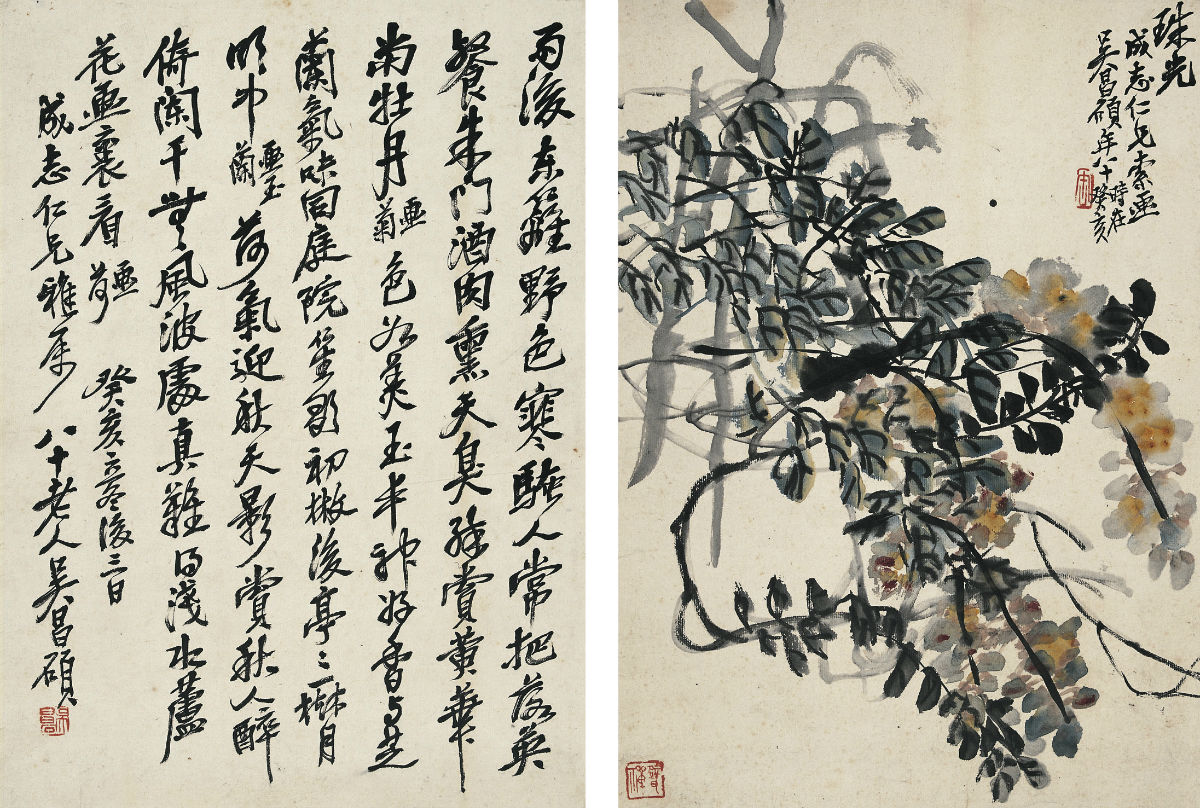 雨後東籬野色寒騷人常把落英
餐朱門酒肉熏天臭賞黄華
當牡丹 畫菊 色如美玉丰神好香与芝
蘭氣味同庭院笙歌初散後亭々一樹月
明中 畫玉蘭 荷氣迎秋天影賞秋人醉
倚闌干無風波處真難得淺水蘆
花畫裏看 畫荷 癸亥立冬後三日
成志仁兄雅屬 八十老人吳昌碩
珠光
成志仁兄索畫時在癸亥
吳昌碩年八十